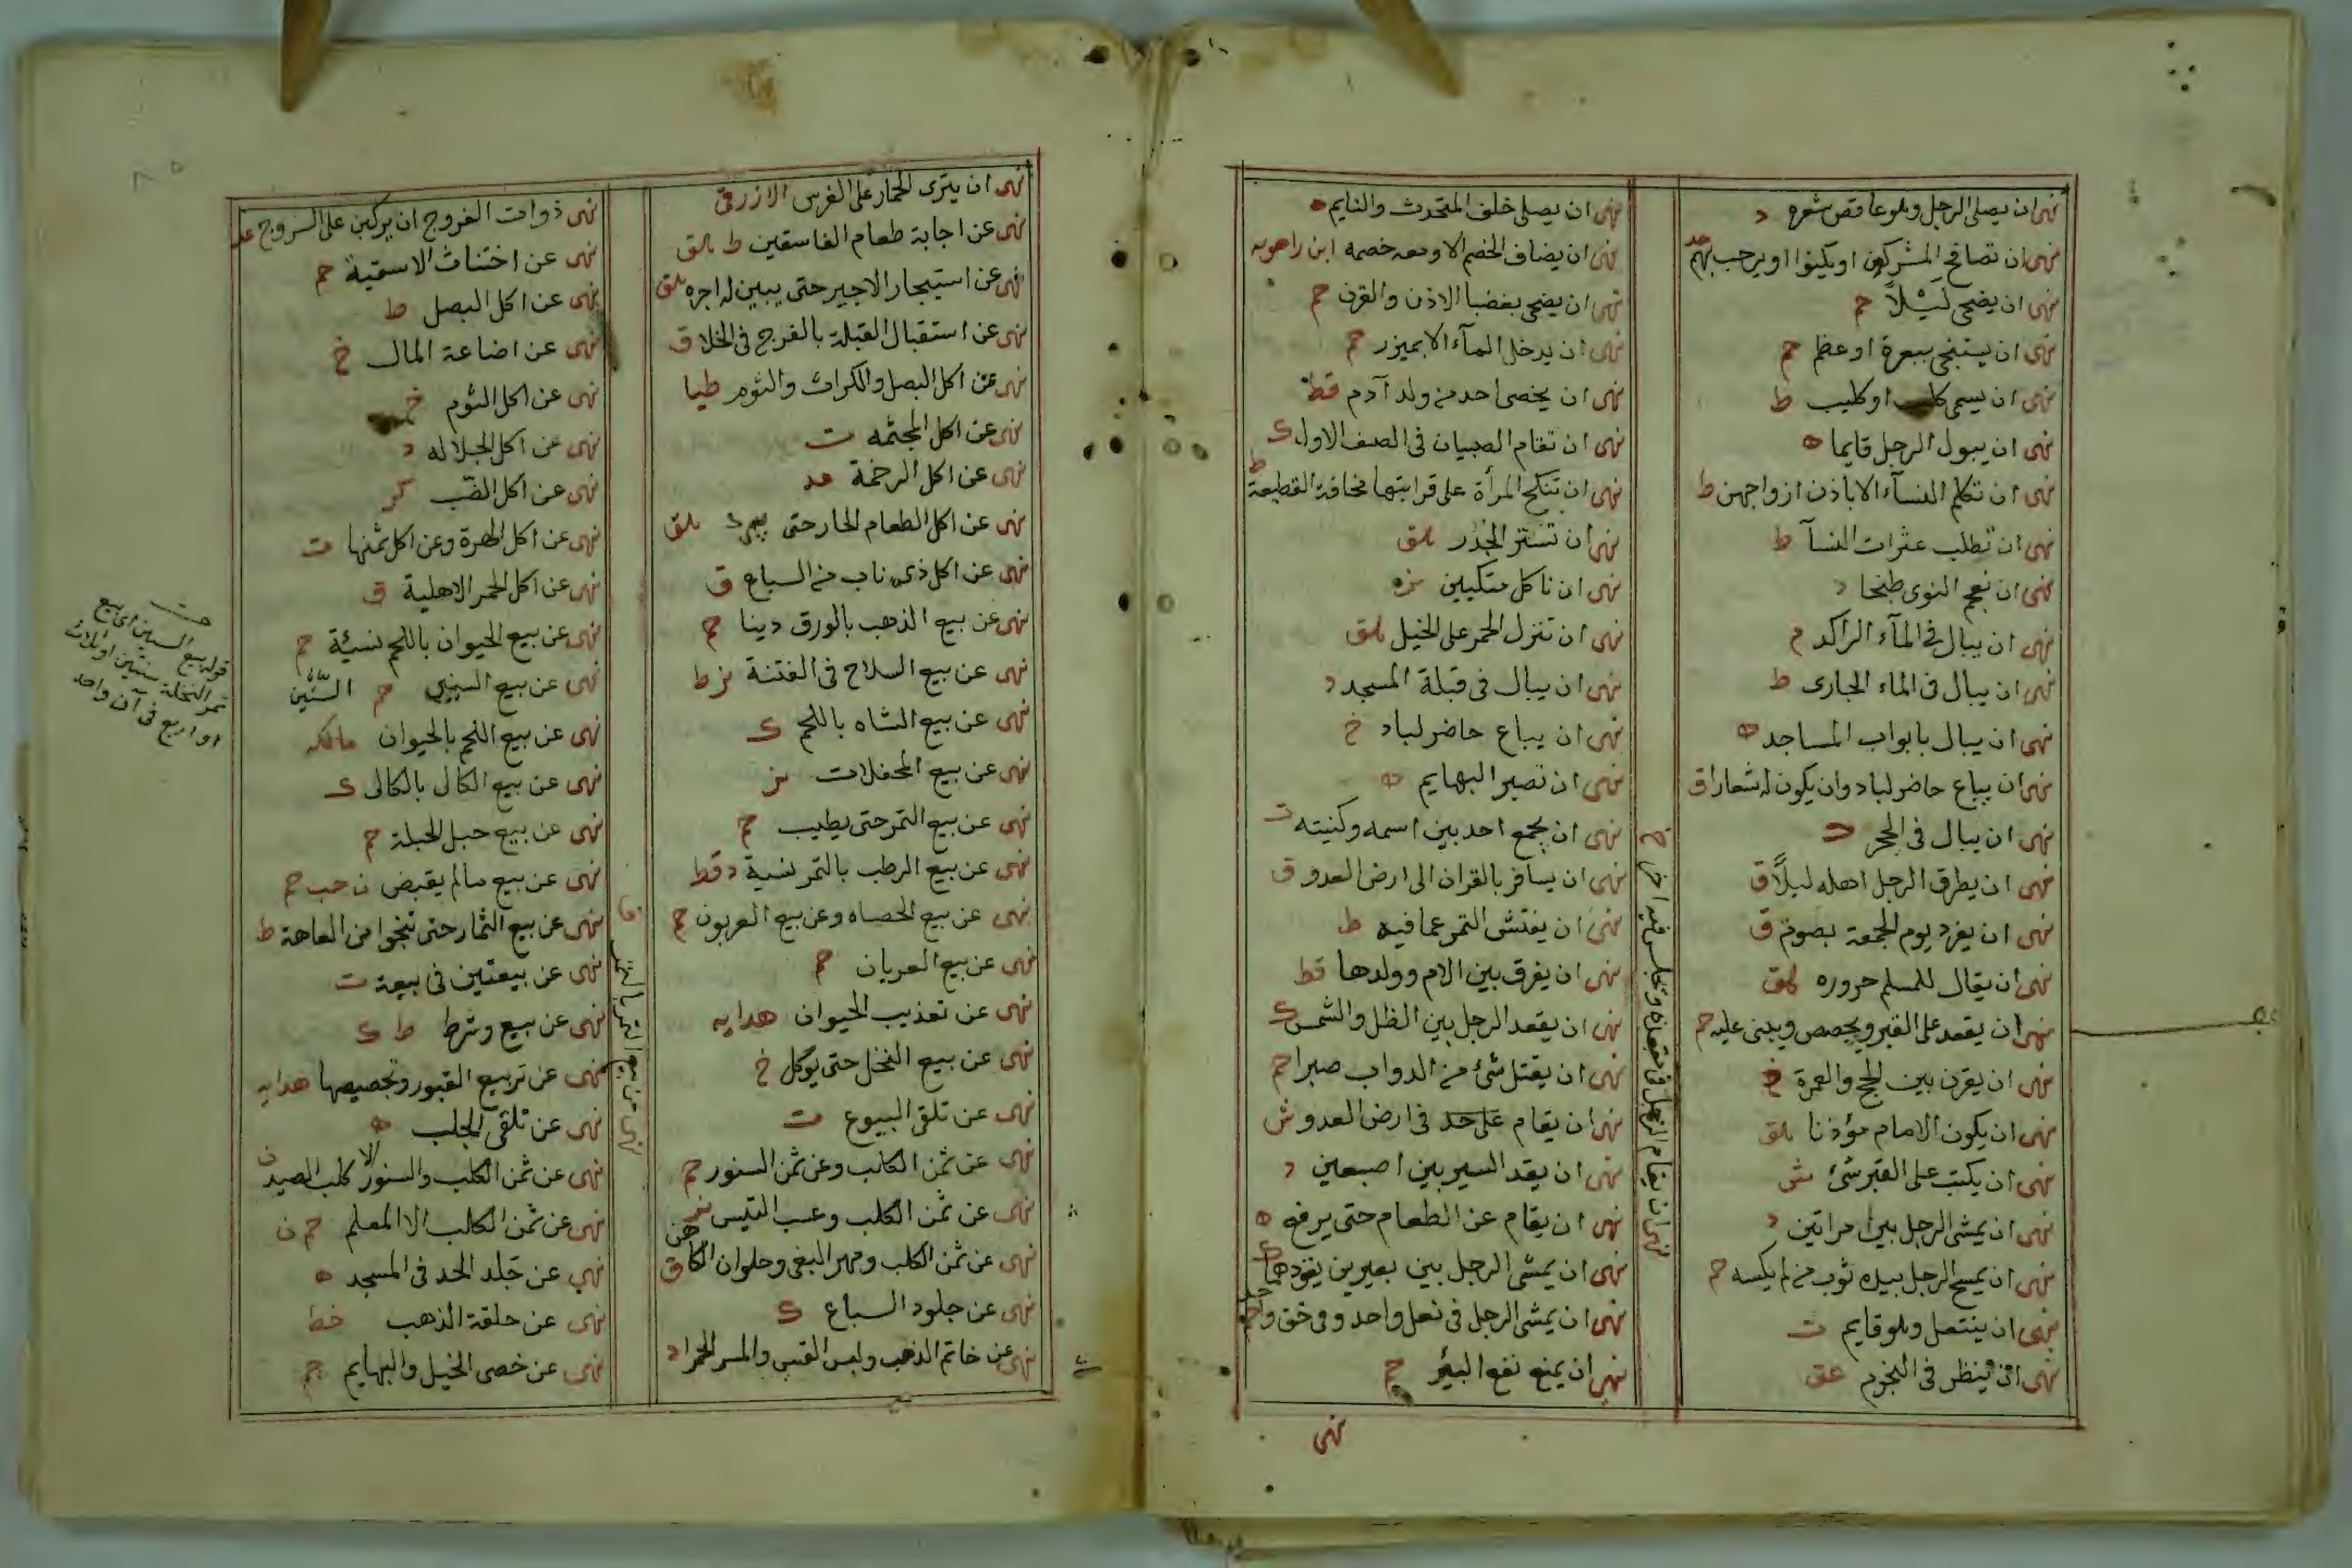 نهى ان يصلى الرجل وهو عاقص شعره د
نهى ان تصافح المشركون او يكنوا او يرحب بهم
نهى ان يضحى ليلاً
نهى ان يستنجى ببعرة او عظم حم
نهى ان يسمى كلب او كليب ط
نهى ان يبول الرجل قايما ه
نهى ان تكلم النسآء الا باذن ازواجهن ط
نهى ان تطلب عثرات النسآ ط
نهى ان نعجم النوى طبخا د
نهى ان يبال فى المآء الراكد م
نهى ان يبال فى الماء الجارى ط
نهى ان يبال بابواب المساجد
نهى ان يباع حاضر لباد وان يكون له شعار ق
نهى ان يبال فى الجحر د
نهى ان يطرق الرجل اهله ليلاً ق
نهى ان يفرد يوم الجمعة بصوم ق
نهى ان يقال للمسلم حروره
نهى ان يقعد على القبر ويجصص ويبنى عليه حم
نهى ان يقرن بين الحج والعمرة
نهى ان يكون الامام مؤذنا
نهى ان يكتب على القبر شئ
نهى ان يمشى الرجل بين امراتين د
نهى ان يمسح الرجل بيده ثوب من لم يكسه حم
نهى ان ينتعل وهو قايم ت
نهى ان ينظر فى النجوم
نهى ان يقام الرجل من مقعده وتجلس فيه اخر خ
نهى ان يصلى خلف المتحدث والنايم ه
نهى ان يضاف الخصم الا ومعه خصمه ابن راهويه
نهى ان يضحى بعضبا الاذن والقرن حم
نهى ان يدخل المآء الا بميزر
نهى ان يخصى احد من ولد آدم قط
نهى ان تقام الصبيان فى الصف الاول ك
نهى ان تنكح المرأة على قرابتها مخافة القطيعة ط
نهى ان تستر الجدر
نهى ان ناكل متكيين
نهى ان تنزل الحمر على الخيل
نهى ان يبال فى قبلة المسجد د
نهى ان يباع حاضر لباد خ
نهى ان تصبر البهايم
نهى ان يجمع احد بين اسمه وكنيته ت
نهى ان يسافر بالقران الى ارض العدو ق
نهى ان يفتش التمر عما فيه ط
نهى ان يفرق بين الام وولدها قط
نهى ان يقعد الرجل بين الظل والشمس ك
نهى ان يقتل شئ من الدواب صبرا حم
نهى ان يقام على حد فى ارض العدو ش
نهى ان يقد السير بين اصبعين د
نهى ان يقام عن الطعام حتى يرفع ه
نهى ان يمشى الرجل بين بعيرين يقودهما ك
نهى ان يمشى الرجل فى نعل واحد وفى خف واحد
نهى ان يمنع نفع البئر
نهى
نهى ان ينزى الحمار على الفرس
نهى عن اجابة طعام الفاسقين ط
نهى عن استيجار الاجير حتى يبين له اجره
نهى عن استقبال القبلة بالفرج فى الخلا ق
نهى عن اكل البصل والكراث والثوم طيا
نهى عن اكل المجثمه ت
نهى عن اكل الرخمة عد
نهى عن اكل الطعام الحار حتى يبرد
نهى عن اكل ذى ناب من السباع ق
نهى عن بيع الذهب بالورق دينا حم
نهى عن بيع السلاح فى الفتنة ط
نهى عن بيع الشاه باللحم ك
نهى عن بيع المحفلات
نهى عن بيع التمر حتى يطيب حم
نهى عن بيع الرطب بالتمر نسية د قط
نهى عن بيع الحصاه وعن بيع العربون حم
نهى عن بيع العريان حم
نهى عن تعذيب الحيوان هدايه
نهى عن بيع النخل حتى يوكل خ
نهى عن تلقى البيوع ت
نهى عن ثمن الكلب وعن ثمن السنور حم
نهى عن ثمن الكلب وعسب التيس
نهى عن ثمن الكلب ومهر البغى وحلوان الكاهن ق
نهى عن جلود السباع ك
نهى عن خاتم الذهب ولبس القسى والحمرا د
نهى عن بيع الثمر بالتمر ق
نهى ذوات الفروج ان يركبن على السروج
نهى عن اختناث الاسقية حم
نهى عن اكل البصل ط
نهى عن اضاعة المال خ
نهى عن اكل الثوم خ
نهى عن اكل الجلاله د
نهى عن اكل الضب كر
نهى عن اكل الهرة وعن اكل ثمنها ت
نهى عن اكل الحمر الاهلية ق
نهى عن بيع الحيوان باللحم نسيئة حم
نهى عن بيع السنين حم السّنين
نهى عن بيع اللحم بالحيوان
نهى عن بيع الكالى بالكالى ك
نهى عن بيع حبل الحبلة حم
نهى عن بيع مالم يقبض
نهى عن بيع الثمار حتى تنجوا من العاهة ط
نهى عن بيعتين فى بيعة ت
نهى عن بيع وشرط ط ك
نهى عن تربيع القبور وتجصيصها هدايه
نهى عن تلقى الجلب ه
نهى عن ثمن الكلب والسنور الا كلب الصيد ن
نهى عن ثمن الكلب الا المعلم حم ن
نهى عن جَلد الحد فى المسجد ه
نهى عن حلقة الذهب خط
نهى عن خصى الخيل والبهايم حم
قوله بيع السنين اى بيع
ثمر النخلة سنتين او ثلاث
او اربع فى آن واحد